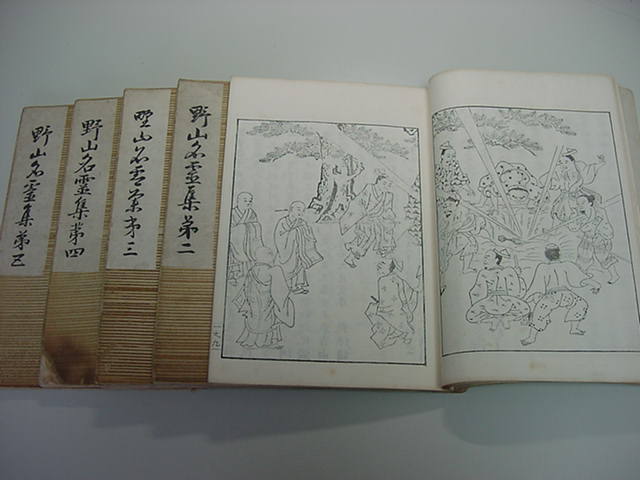 野山名霊集第二
野山名霊集第三
野山名霊集第四
野山名霊集第五